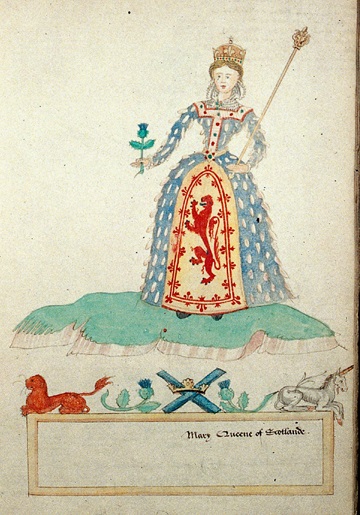 Mary Queene of Scotlande